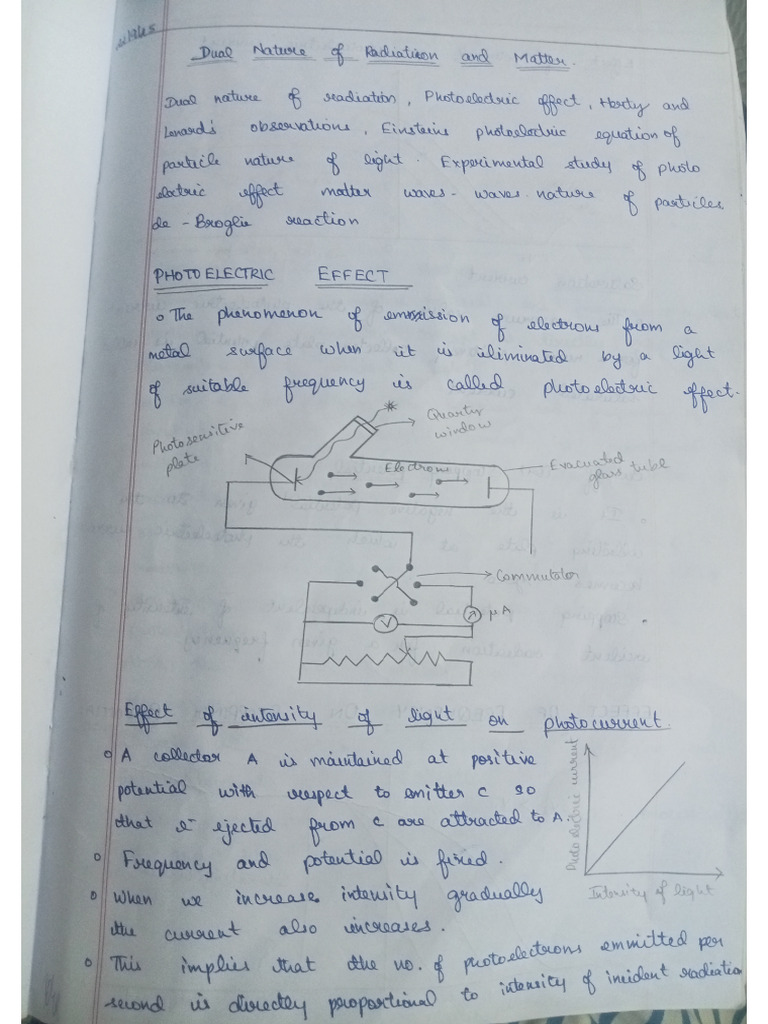 Dual Nature of Radiation and Matter.
Dual nature of radiation, Photoelectric effect, Hertz and
Lenard's observations, Einsteins photoelectric equation of
particle nature of light. Experimental study of photo
electric effect matter waves - waves nature of particles
de - Broglie reaction
PHOTOELECTRIC EFFECT
The phenomenon of emission of electrons from a
metal surface when it is iliminated by a light
of suitable frequency is called photoelectric effect.
Photosensitive
plate
Quartz
window
Electrons
Evacuated
glass tube
Commutator
μA
A
V
Effect of intensity of light on photocurrent.
A collector A is maintained at positive
potential with respect to emitter C so
that e- ejected from C are attracted to A
Photo electric current
Intensity of light
Frequency and potential is fixed.
When we increase intensity gradually
the current also increases.
This implies that the no. of photoelectrons emmitted per
second is directly proportional to intensity of incident radiation